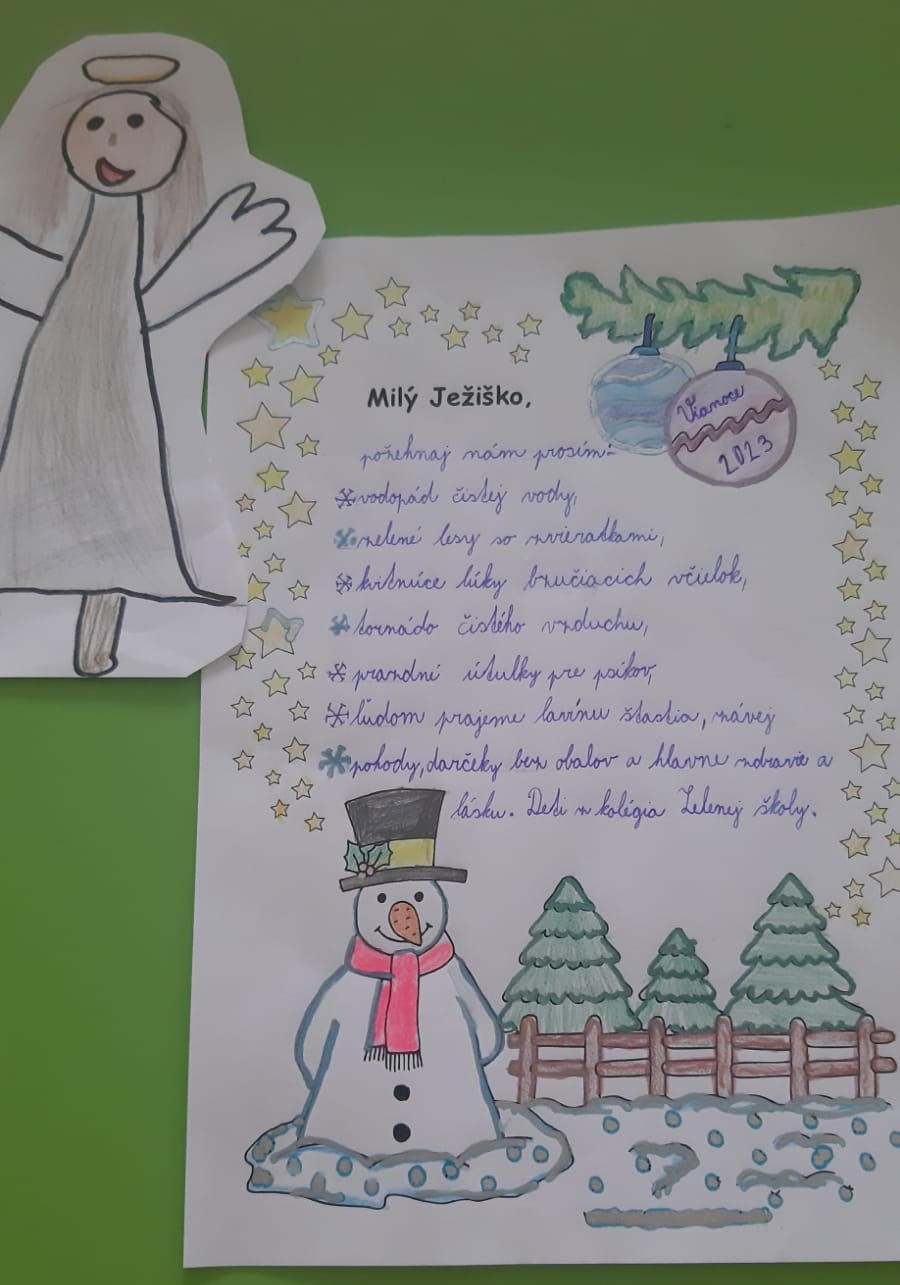 Milý Ježiško,
Vianoce
2023
požehnaj nám prosím:
vodopád čistej vody,
zelené lesy so zvieratkami,
kvitnúce lúky bzučiacich včielok,
tornádo čistého vzduchu,
prázdné útulky pre psíkov,
ľuďom prajeme lavínu šťastia, závej
pohody, darčeky bez obalov a hlavne zdravie a
lásku. Deti z kolégia Zelenej školy.